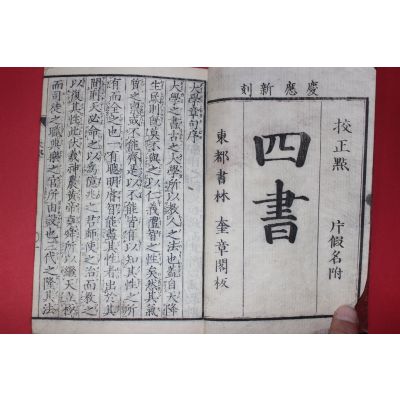 慶應新刻
校正點
片假名附
四書
東都書林 奎章閣板
大學章句序
大學之書古之大學所以教人之法也蓋自天降
生民則既莫不與之以仁義禮智之性矣然其氣
質之稟或不能齊是以不能皆有以知其性之所
有而全之也一有聰明睿智能盡其性者出於其
間則天必命之以爲億兆之君師使之治而教之
以復其性此伏羲神農黃帝堯舜所以繼天立極
而司徒之職典樂之官所由設也三代之隆其法